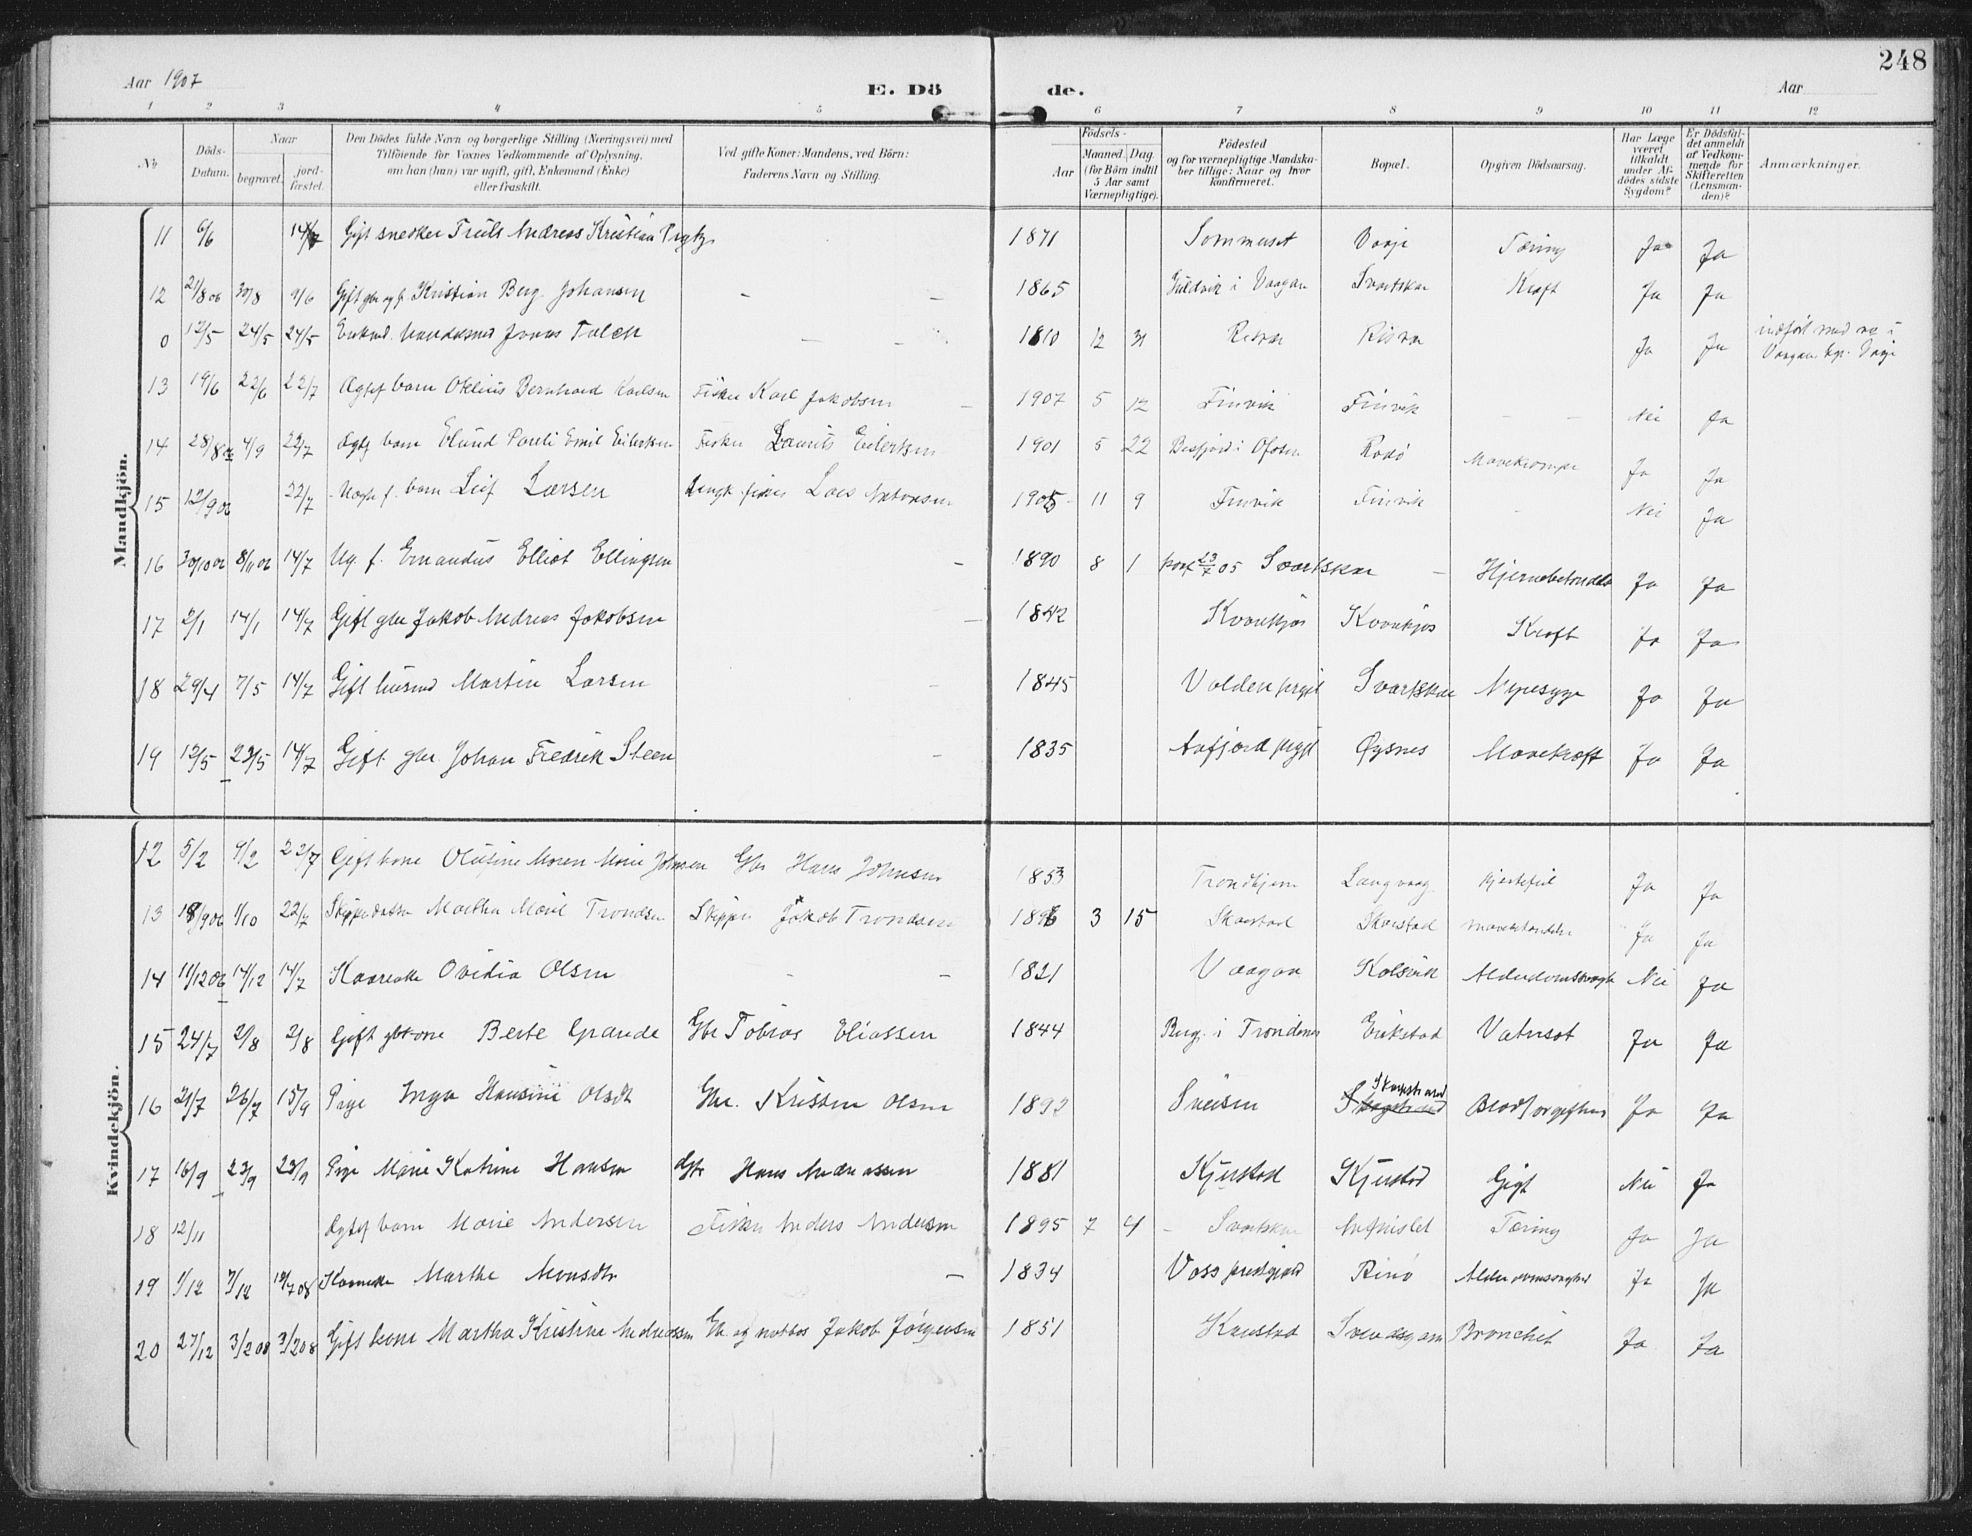 248
Aar 1907 E. Dö de. Aar
1 2 3 4 5 6 7 8 9 10 11 12
No. Döds-Datum. Naar begravet. jordfæstet. Den Dödes fulde Navn og borgerlige Stilling (Næringsvei) med Tilföiende for Voxnes Vedkommende af Oplysning, om han (hun) var ugift, gift, Enkemand (Enke) eller fraskilt. Ved gifte Koner: Mandens, ved Börn: Faderens Navn og Stilling. Födsels- Aar Maaned. Dag (for Börn indtil 5 Aar samt Værnepligtige). Födested og for værnepligtige Mandskaber tillige: Naar og hvor konfirmeret. Bopæl. Opgiven Dödsaarsag. Har Læge været tilkaldt under Afdödes sidste Sygdom? Er Dödsfaldet anmeldt af Vedkommende for Skifteretten (Lensmanden)? Anmærkninger.
Mandkjön.
11 6/6 14/7 Gift snedker Truls Andreas Kristian 1871 Sommeset Vaaje Tæring Ja Ja
12 21/8 06 30/8 9/6 Gift Kristian Berg Johansen – – 1865 i Vaagan Svartskar Kræft Ja Ja
0 12/5 24/5 24/5 Enkemd. Jonas Falch – – 1810 12 31 Risvær Risvær Ja Ja indført med no i Vaagan
13 19/6 22/6 22/7 Ægtef barn Otelius Bernhard Karlsen Fisker Karl Jakobsen – 1907 5 12 Finvik Finvik – – Nei Ja
14 28/8 06 4/9 22/7 Ægtef barn Elund Pauli Emil Eilertsen Fisker Laurits Eilertsen 1901 5 22 i Ofoten Rodö Mavekrampe Ja Ja
15 12/9 06 22/7 Uægte f. barn Leif Larsen Ungk fisker Lars Antonsen 1905 11 9 Finvik Finvik – Nei Ja
16 30/10 06 8/11 06 14/7 Ug. f. Emandus Elliot Ellingsen – 1890 8 1 konf 23/7 05 Svartskar – Hjernebetændelse Ja Ja
17 2/1 14/1 14/7 Gift gbr Jakob Andreas Jakobsen – 1842 Kvannkjos Kvannkjos Kræft Ja Ja
18 29/4 7/5 14/7 Gift husmd Martin Larsen – 1845 Volden prgjd Svartskar Nyresyge Ja Ja
19 12/5 23/5 14/7 Gift gbr. Johan Fredrik Steen – 1835 Aafjord prgjd Øysnes Mavekræft Ja Ja
Kvindekjön.
12 5/2 9/2 22/7 Gift kone Olusine Maren Marie Johnsen Gbr Hans Johnsen 1853 Trondhjem Langvaag Hjertefeil Ja Ja
13 18/9 06 1/10 22/7 Skipperdatter Martha Marie Trondsen Skipper Jakob Trondsen 1896 3 15 Skarstad Skarstad Mavebetændelse Ja Ja
14 11/12 06 14/12 14/7 Kaarenke Ovidia Olsen – – 1821 Vaagan Kalsvik Alderdomssvaghed Nei Ja
15 24/7 2/8 2/8 Gift gbrkone Berte Grande Gbr Tobias Eliassen 1844 Berg i Trondenes Erikstad Vatersot Ja Ja
16 21/7 26/7 15/9 Pige Inga Hansine Olsdt Gbr. Kristen Olsen 1892 Sneisen Skogstrand Blodforgiftning Ja Ja
17 16/9 23/9 23/9 Pige Marie Katrine Hansen Gbr Hans Andreassen 1881 Kjerstad Kjerstad Gigt Nei Ja
18 12/11 Ægtef barn Marie Andersen Fisker Anders Andersen 1895 7 4 – Svartskar Tæring Ja Ja
19 1/12 7/12 12/7 08 Kaarenke Marthe Monsdtr – 1834 Voss prestgjeld Rinö Alderdomssvaghed Ja Ja
20 27/12 3/2 08 3/2 08 Gift kone Martha Kristine Andreassen Gbr og notbas Jakob Jörgensen 1851 Kanstad Svendsgam Bronchit Ja Ja